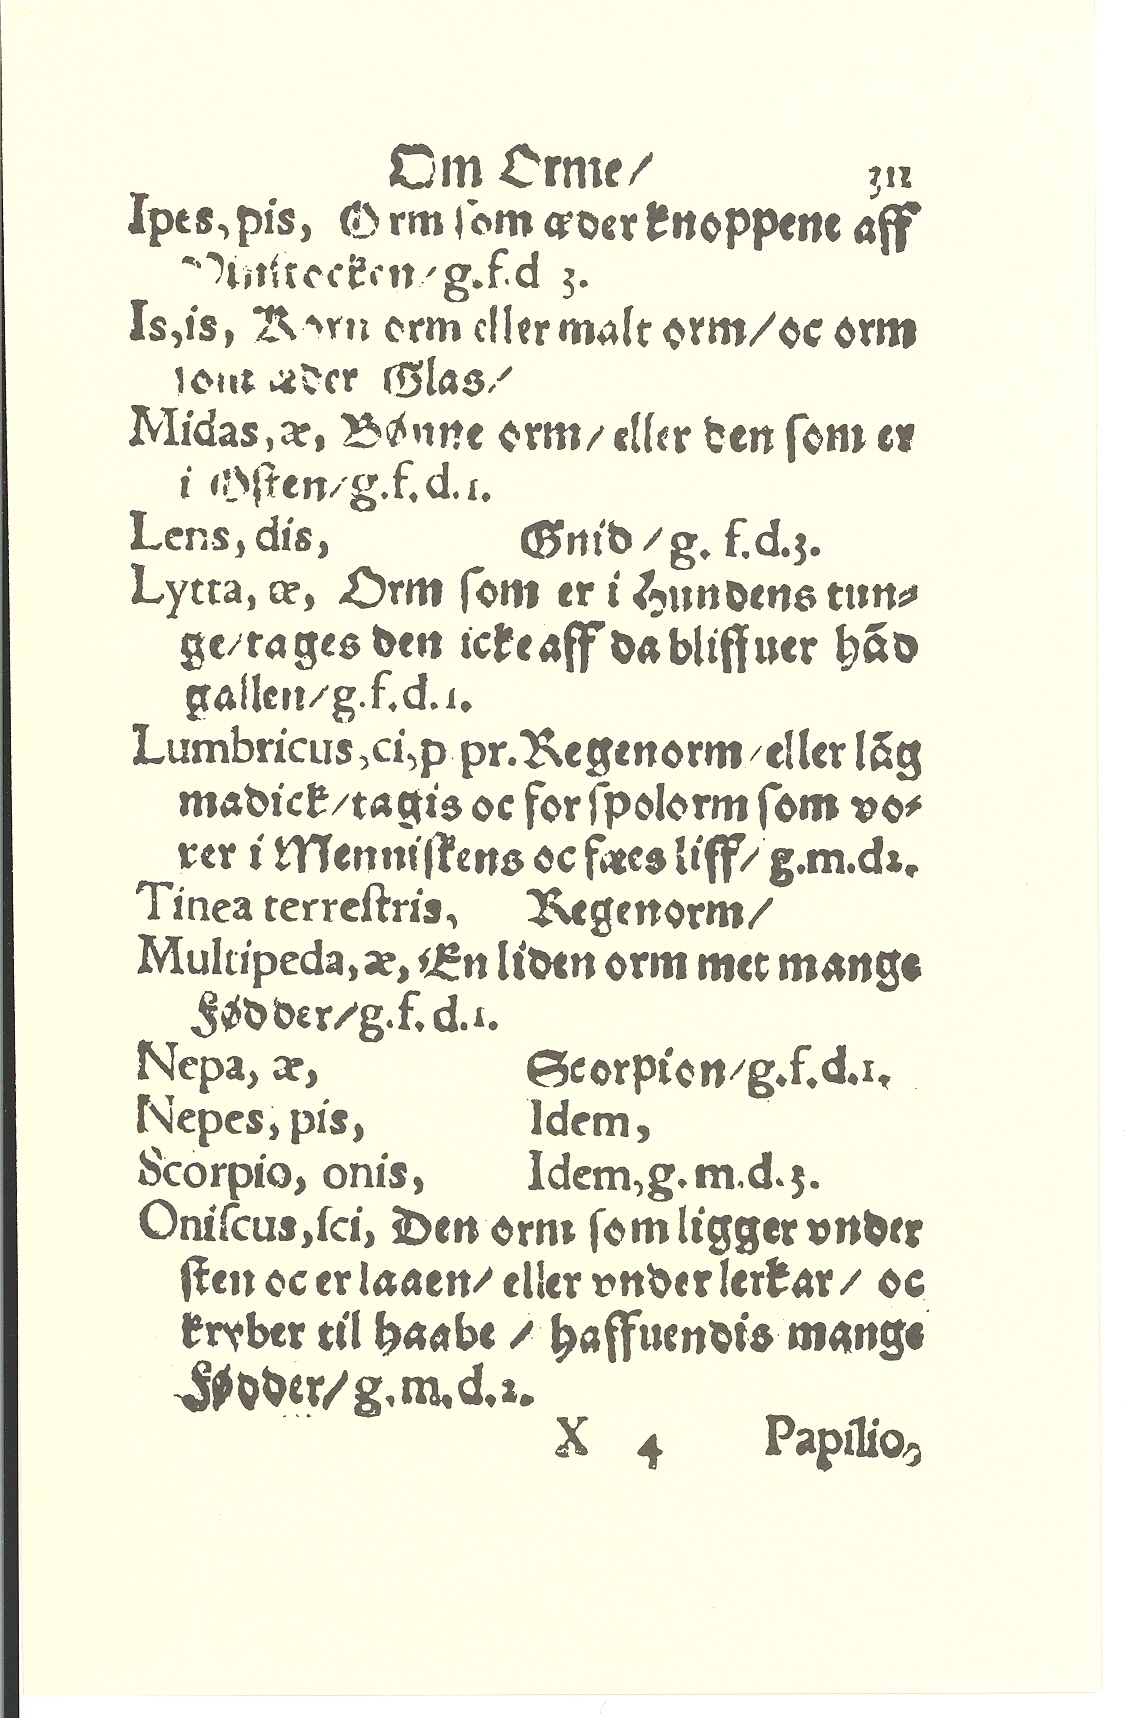 Om Orme/ 311
Ipes, pis, Orm som æder knoppene aff
Vinstocken/ g.f.d 3.
Is, is, Korn orm eller malt orm/ oc orm
som æder Glas/
Midas, æ, Bønne orm/ eller den som er
i Osten/ g.f.d.1.
Lens, dis, Gnid/ g. f.d.3.
Lytta, æ, Orm som er i Hundens tun⸗
ge/ tages den icke aff da bliffuer hãd
gallen/ g.f.d.1.
Lumbricus, ci, p pr. Regenorm/ eller lãg
madick/ tagis oc for spolorm som vo⸗
rer i Menniskens oc fæes liff/ g.m.d2.
Tinea terrestris, Regenorm/
Multipeda, æ, En liden orm met mange
Fødder/ g.f.d.1.
Nepa, æ, Scorpion/ g.f.d.1.
Nepes, pis, Idem,
Scorpio, onis, Idem, g.m.d.3.
Oniscus, sci, Den orm som ligger vnder
sten oc er laaen/ eller vnder lerkar/ oc
kryber til haabe / haffuendis mange
Fødder/ g.m.d.2.
X 4 Papilio,